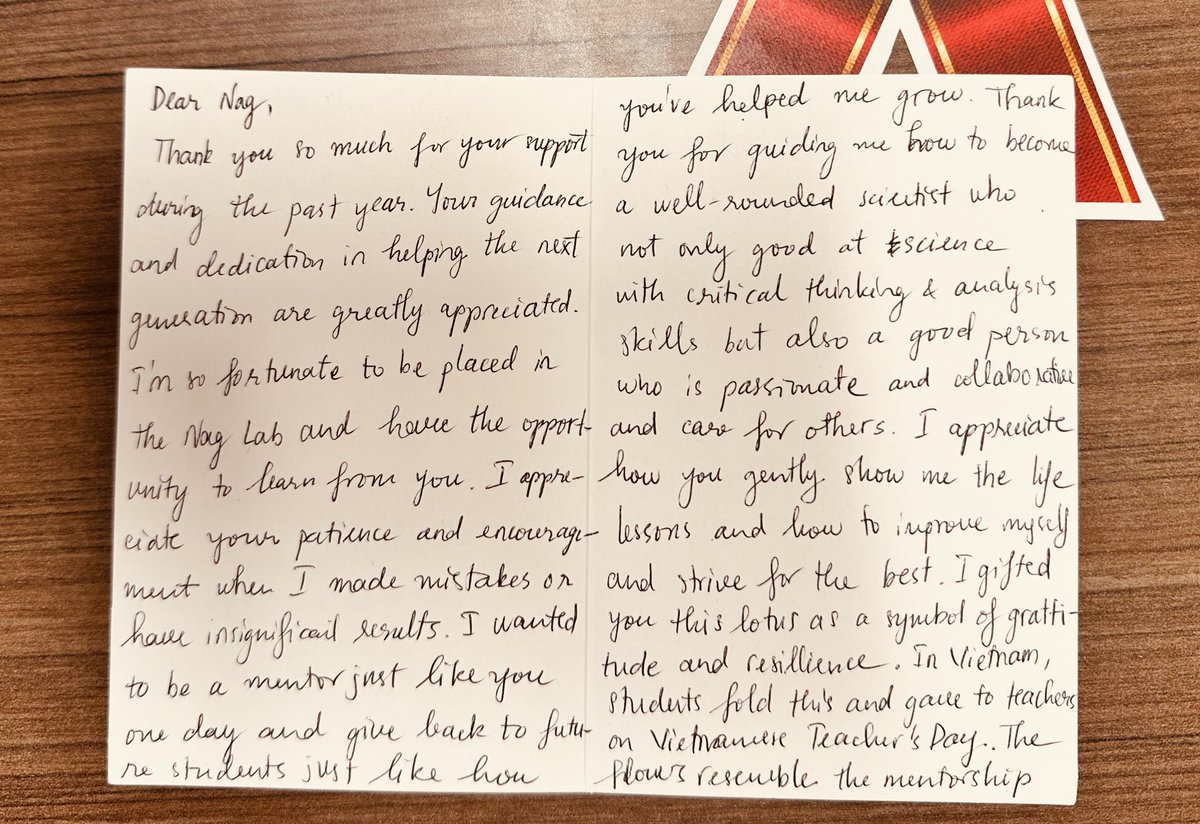 Dear Nag,
Thank you so much for your support
during the past year. Your guidance
and dedication in helping the next
generation are greatly appreciated.
I'm so fortunate to be placed in
the Nag Lab and have the opport-
unity to learn from you. I appre-
ciate your patience and encourage-
ment when I made mistakes or
have insignificant results. I wanted
to be a mentor just like you
one day and give back to futu-
re students just like how
you've helped me grow. Thank
you for guiding me how to become
a well-rounded scientist who
not only good at science
with critical thinking & analysis
skills but also a good person
who is passionate and collaborative
and care for others. I appreciate
how you gently show me the life
lessons and how to improve myself
and strive for the best. I gifted
you this lotus as a symbol of gratti-
tude and resillience. In Vietnam,
students fold this and gave to teachers
on Vietnamese Teacher's Day.. The
flowers resemble the mentorship